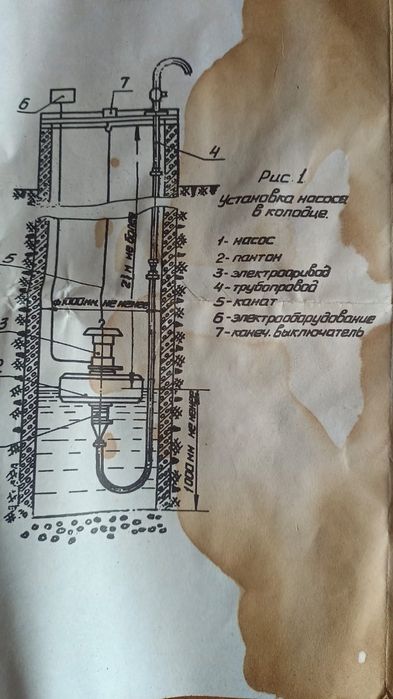 6
7
4
Рис. 1
Установка насоса
в колодце.
1- насос
2- понтон
3- электропривод
4- трубопровод
5- канат
6- электрооборудование
7- конеч. выключатель
21 м не более
5
ф1000мм. не менее
3
1000 мм не менее